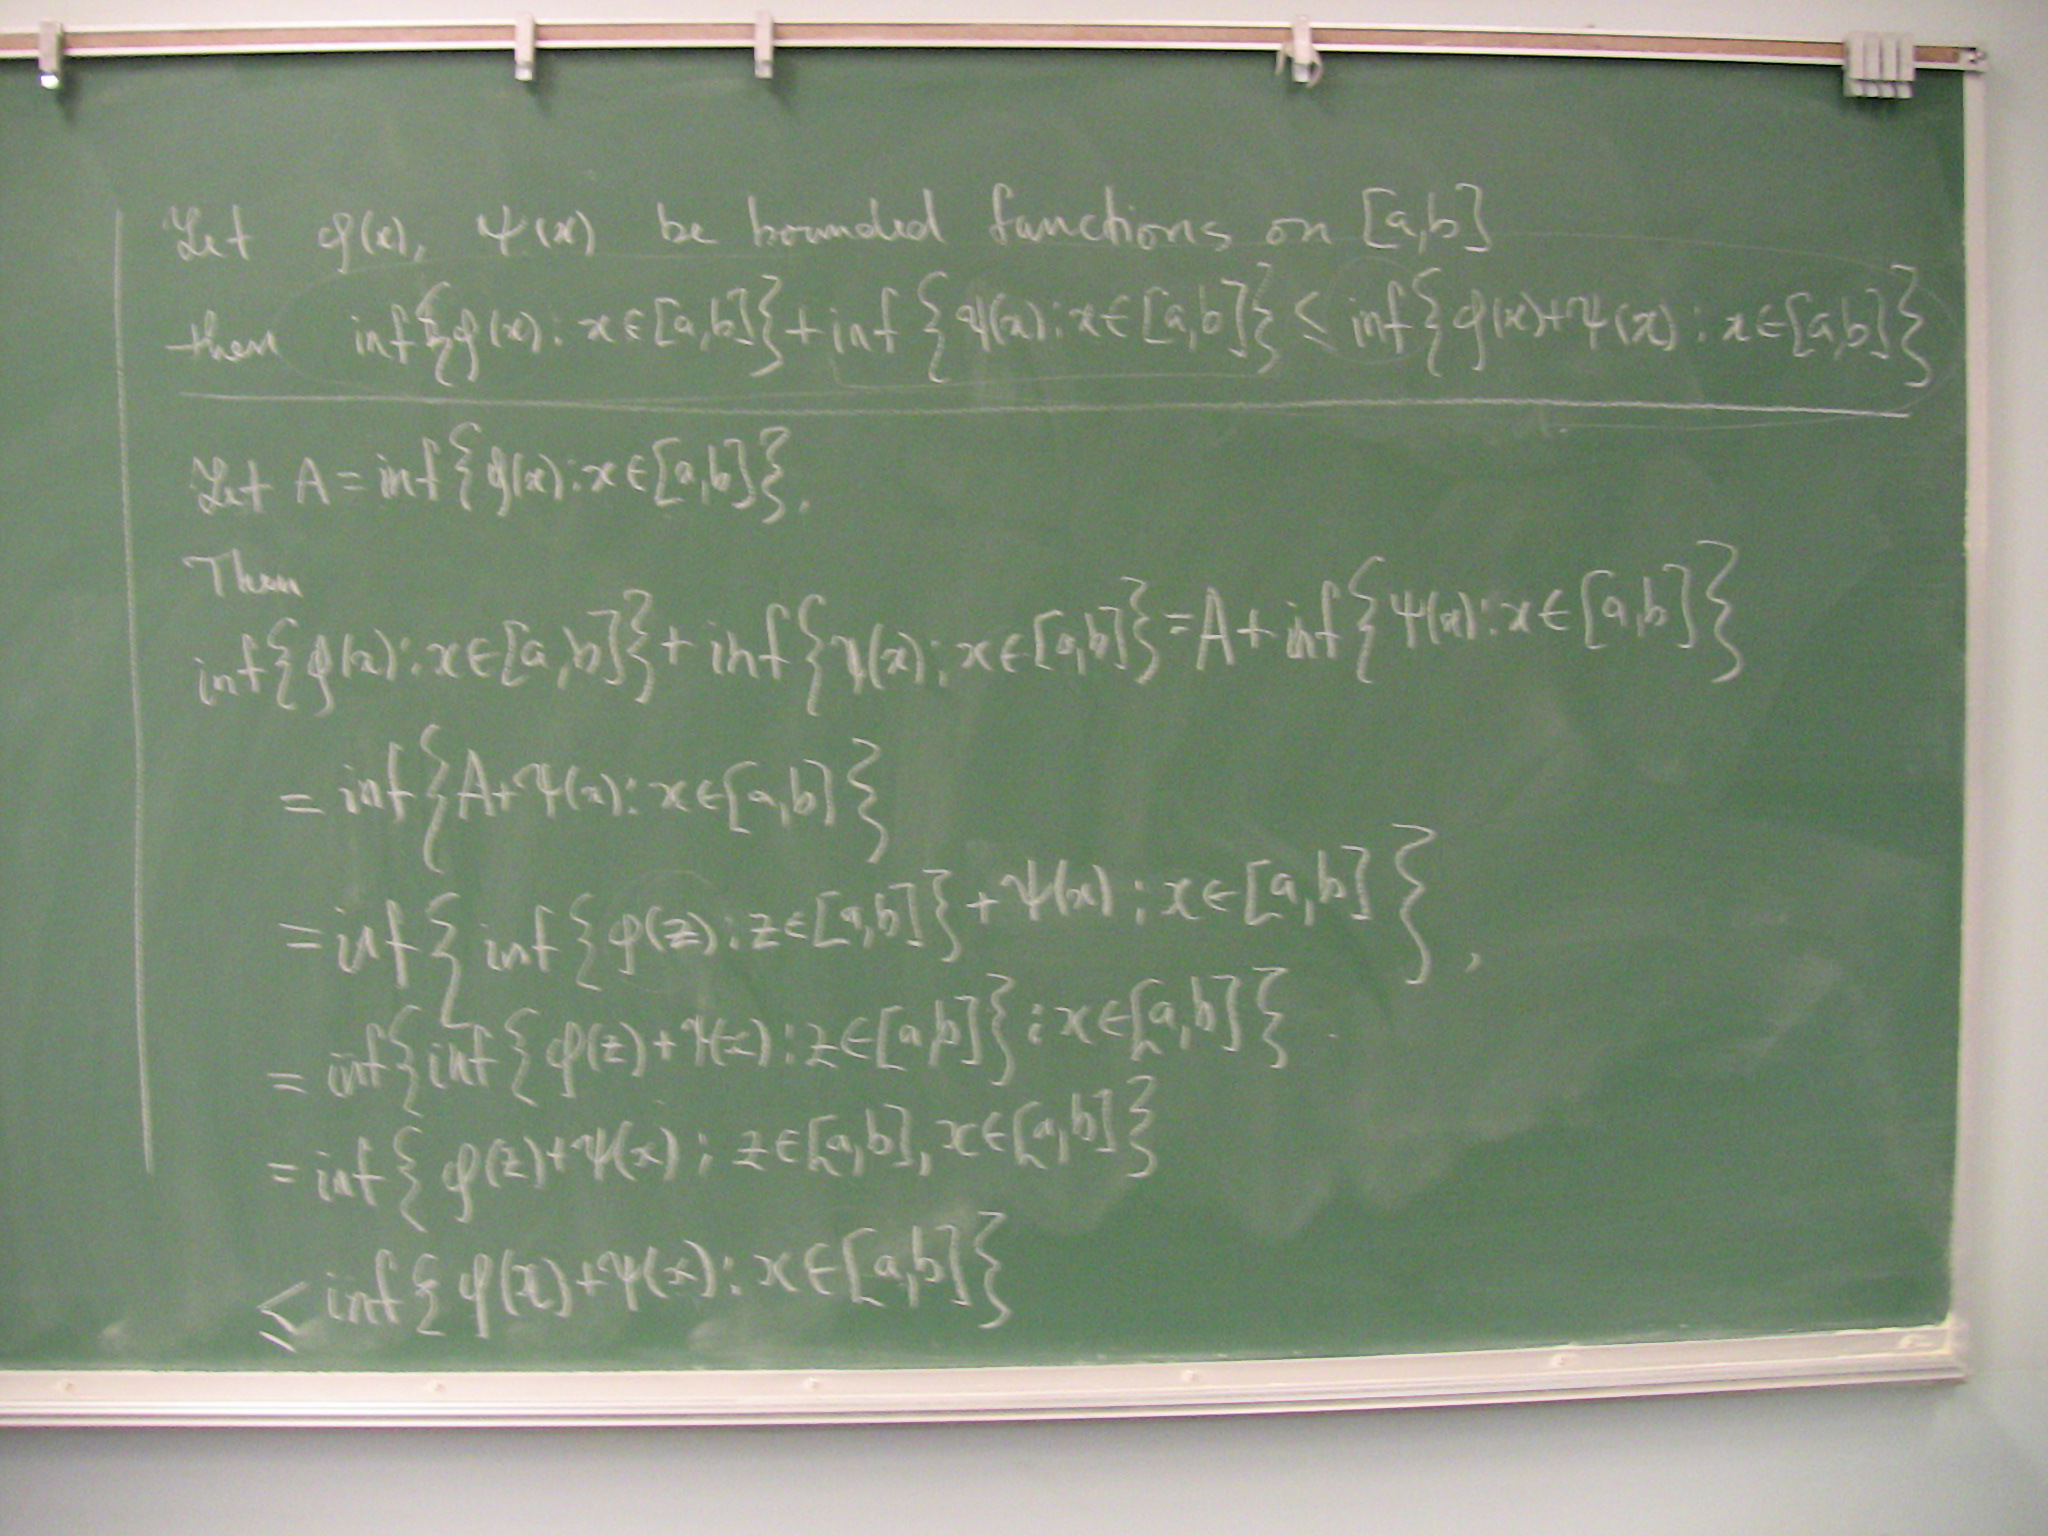 Let φ(x), ψ(x) be bounded functions on [a,b]
then inf{φ(x): x∈[a,b]}+inf{ψ(x): x∈[a,b]} ≤ inf{φ(x)+ψ(x): x∈[a,b]}
Let A = inf{φ(x): x∈[a,b]}.
Then
inf{φ(x): x∈[a,b]}+inf{ψ(x): x∈[a,b]} = A+inf{ψ(x): x∈[a,b]}
= inf{A+ψ(x): x∈[a,b]}
= inf{inf{φ(z): z∈[a,b]}+ψ(x): x∈[a,b]},
= inf{inf{φ(z)+ψ(x): z∈[a,b]}: x∈[a,b]}.
= inf{φ(z)+ψ(x): z∈[a,b], x∈[a,b]}
≤ inf{φ(x)+ψ(x): x∈[a,b]}